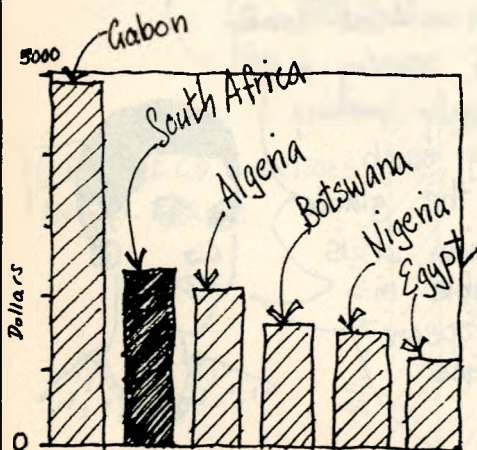 Gabon
5000
South Africa
Algeria
Botswana
Nigeria
Egypt
Dollars
0